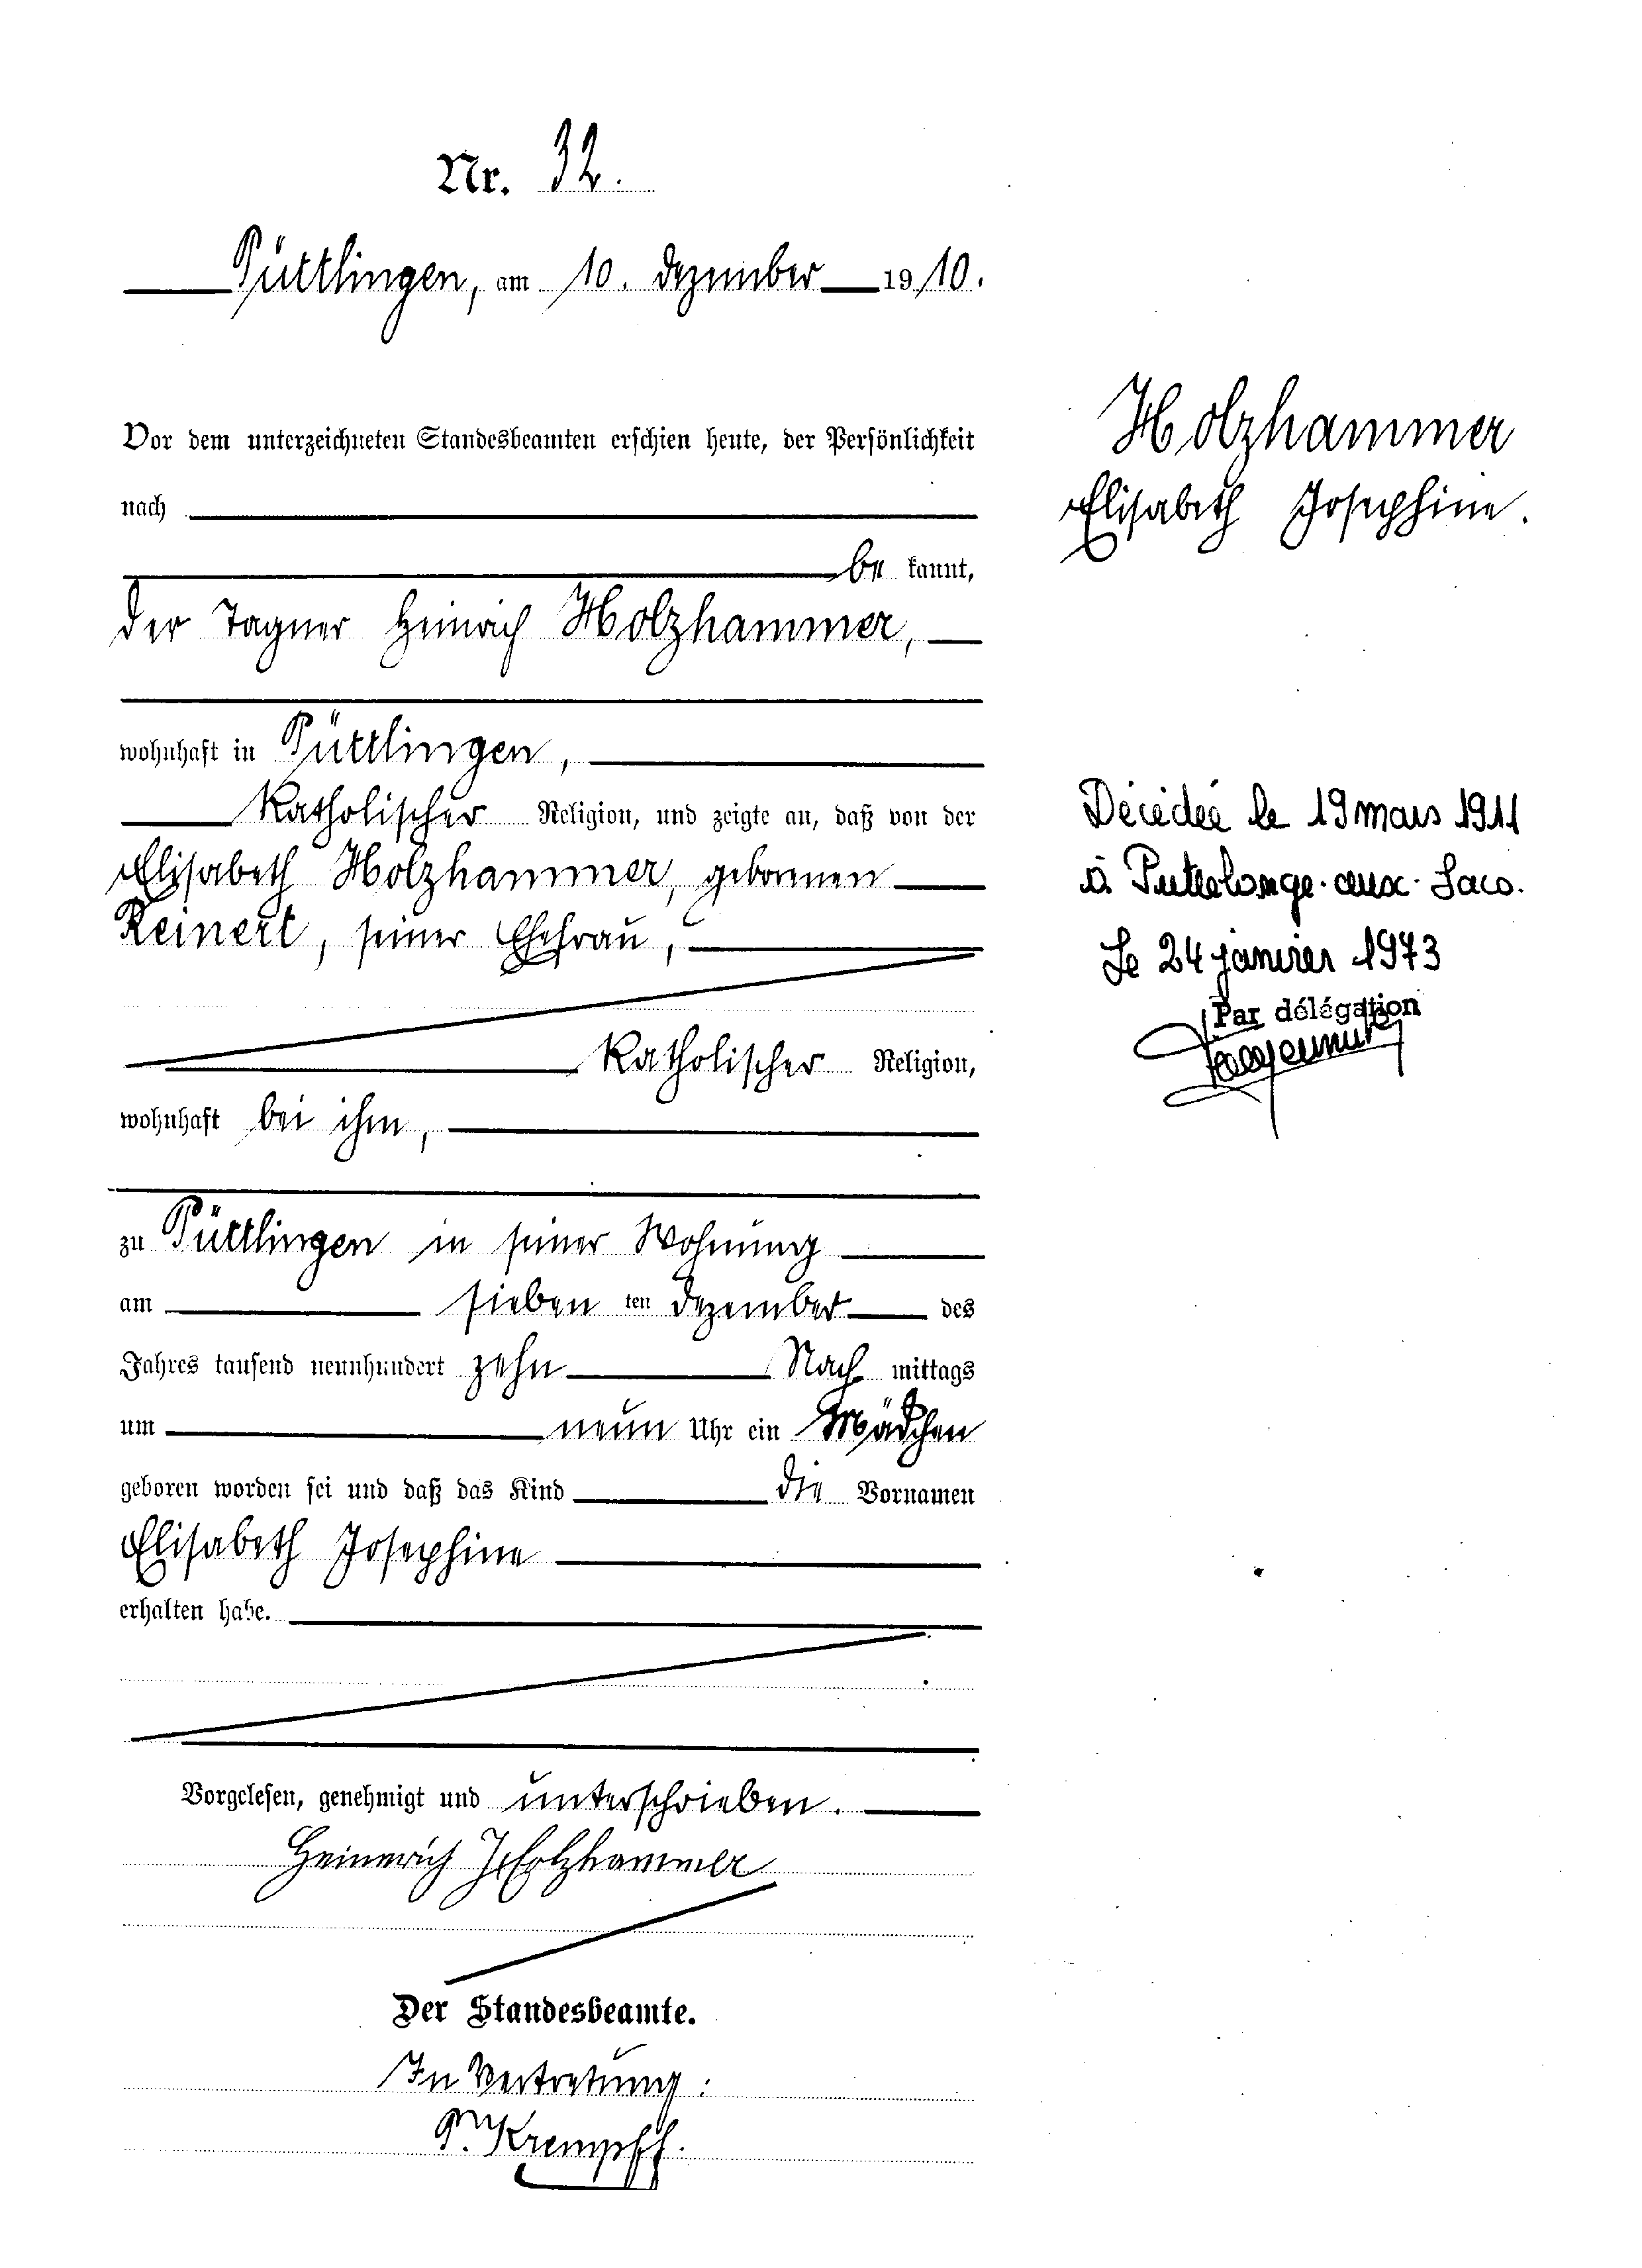 Nr. 32.
Püttlingen, am 10. Dezember 1910.
Vor dem unterzeichneten Standesbeamten erschien heute, der Persönlichkeit
nach
be kannt,
der Tagner Heinrich Holzhammer,
wohnhaft in Püttlingen,
Katholischer Religion, und zeigte an, daß von der
Elisabeth Holzhammer, geborenen
Reinert, seiner Ehefrau,
Katholischer Religion,
wohnhaft bei ihm,
zu Püttlingen in seiner Wohnung
am sieben ten Dezember des
Jahres tausend neunhundert zehn Nach mittags
um neun Uhr ein Mädchen
geboren worden sei und daß das Kind die Vornamen
Elisabeth Josephine
erhalten habe.
Vorgelesen, genehmigt und unterschrieben.
Heinerich Holzhammer
Der Standesbeamte.
In Vertretung:
P. Krempff.
Holzhammer
Elisabeth Josephine.
Décédée le 19 mars 1911
à Puttelange-aux-Lacs.
Le 24 janvier 1973
Par délégation